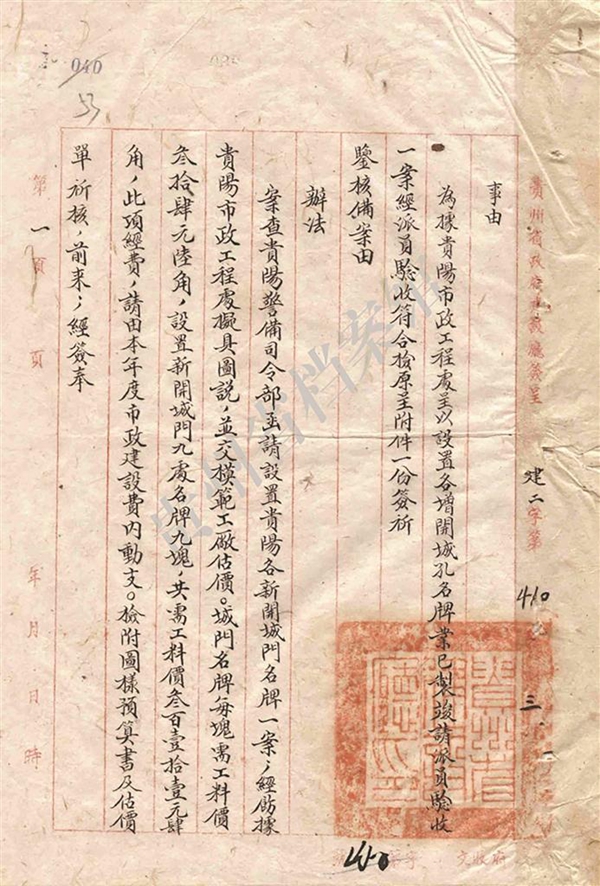 貴州省政府建設廳簽呈
建二字第
410
三
事由
為據貴陽市政工程處呈以設置各增開城孔名牌業已製竣請派員驗收
一案經派員驗收符合檢原呈附件一份簽祈
鑒核備案由
辦法
案查貴陽警備司令部函請設置貴陽各新開城門名牌一案,經飭據
貴陽市政工程處擬具圖說,並交模範工廠估價。城門名牌每塊需工料價
叁拾肆元陸角,設置新開城門九處名牌九塊,共需工料價叁百壹拾壹元肆
角,此項經費,請由本年度市政建設費內動支。檢附圖樣預算書及估價
單祈核,前來,經簽奉
第一頁
年月日時
040
410
府收文
贵州省档案馆